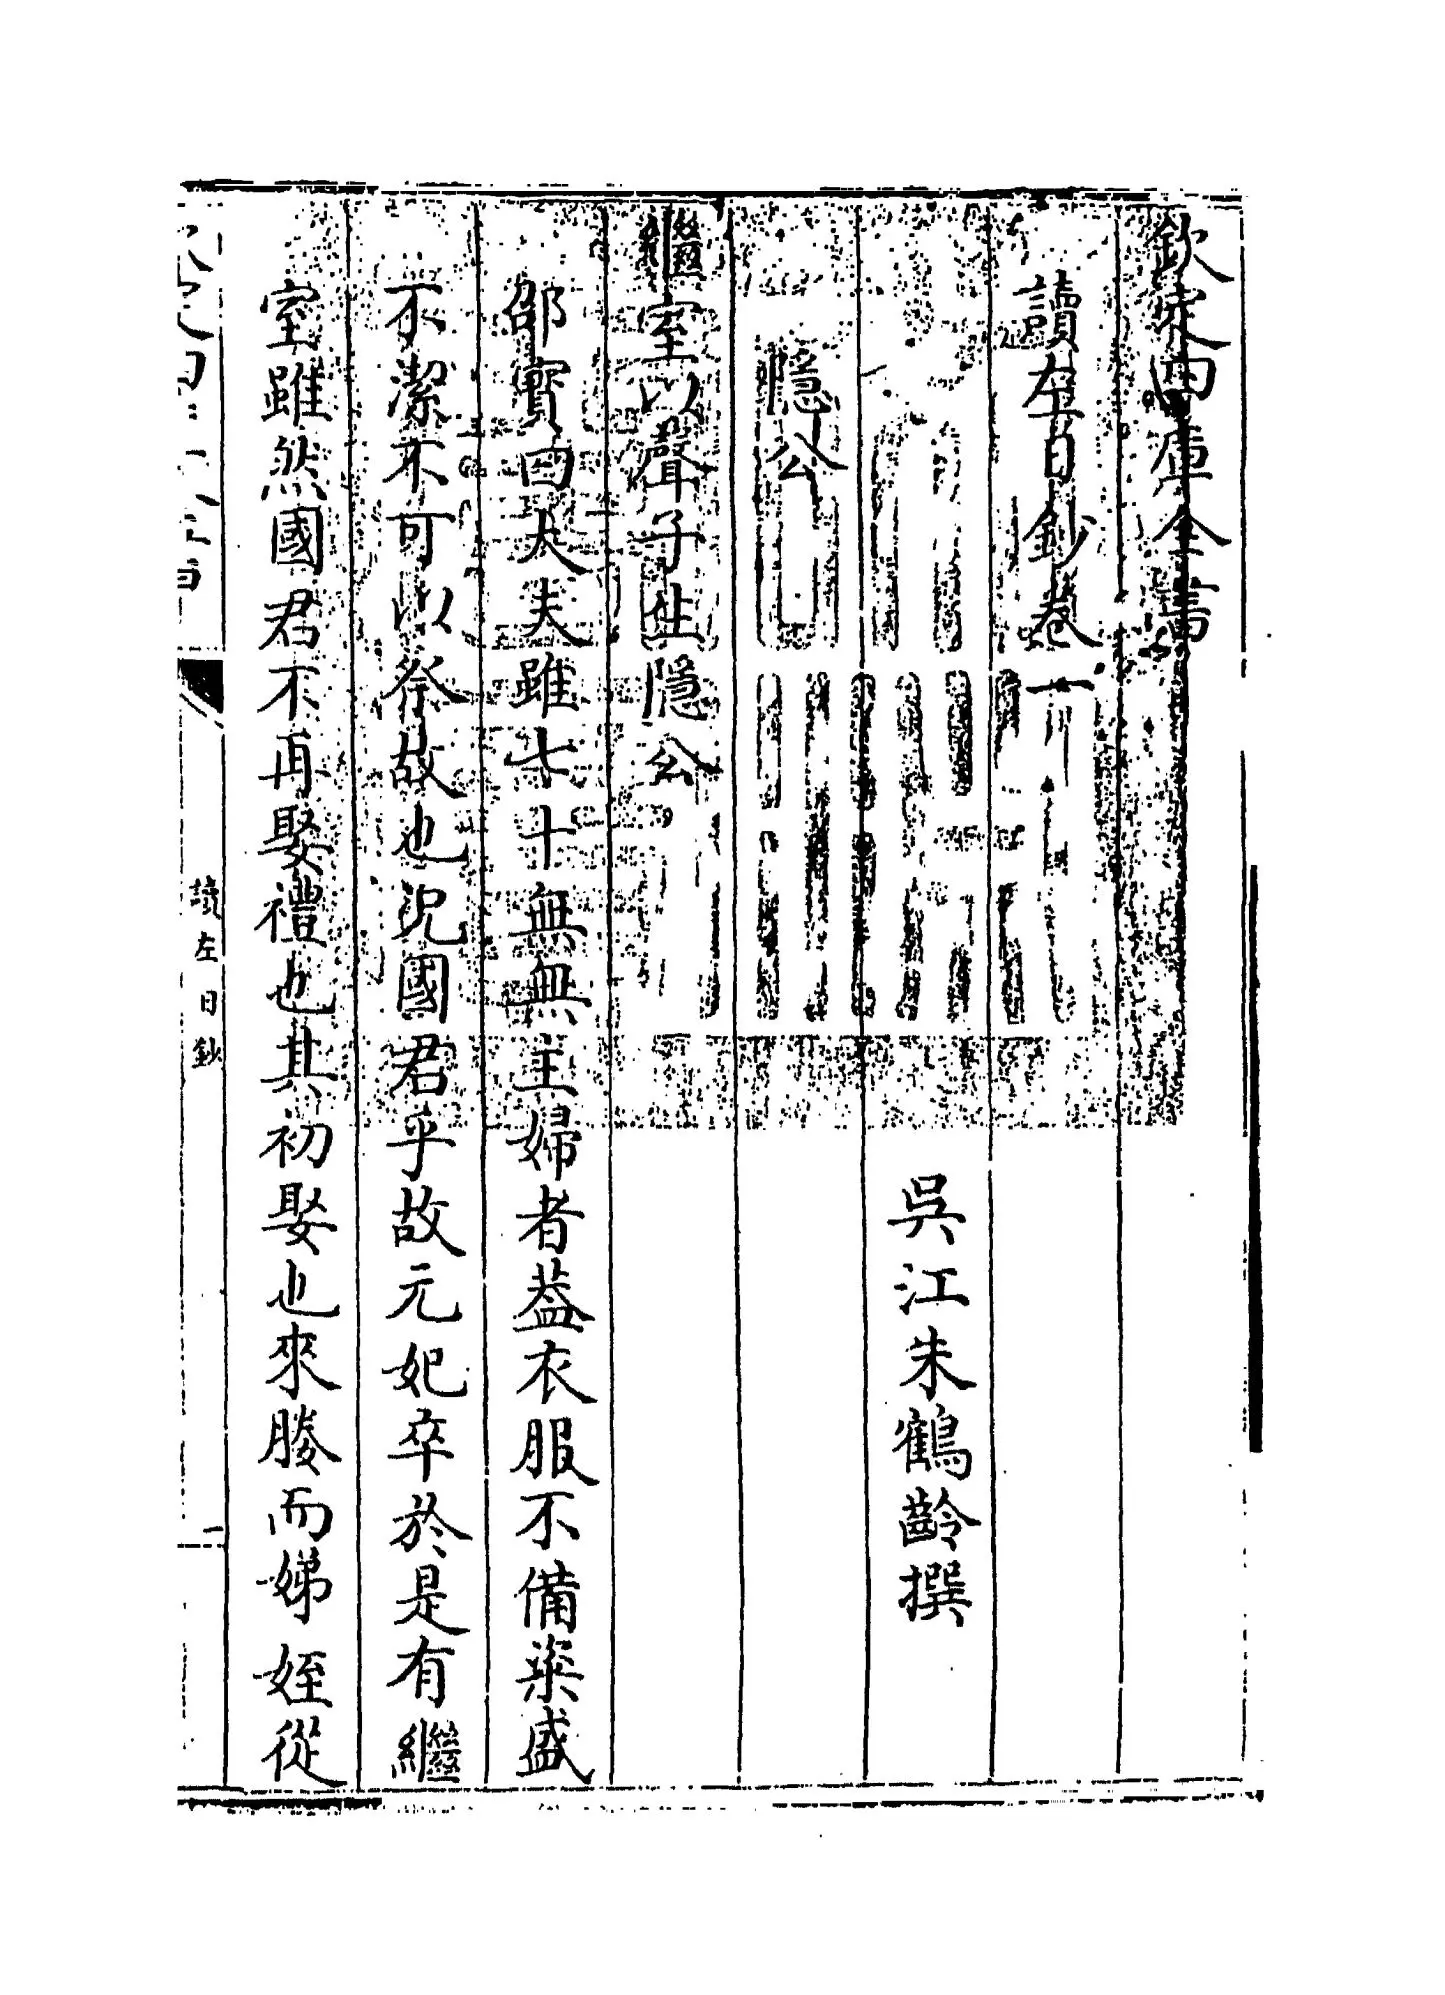 欽定四庫全書
讀左日鈔卷一
吳江朱鶴齡撰
隐公
繼室以聲子生隐公
邵寳曰大夫雖七十無無主婦者葢衣服不備粢盛
不潔不可以祭故也況國君乎故元妃卒於是有繼
室雖然國君不再娶禮也其初娶也來媵而娣姪從
讀左日鈔
一